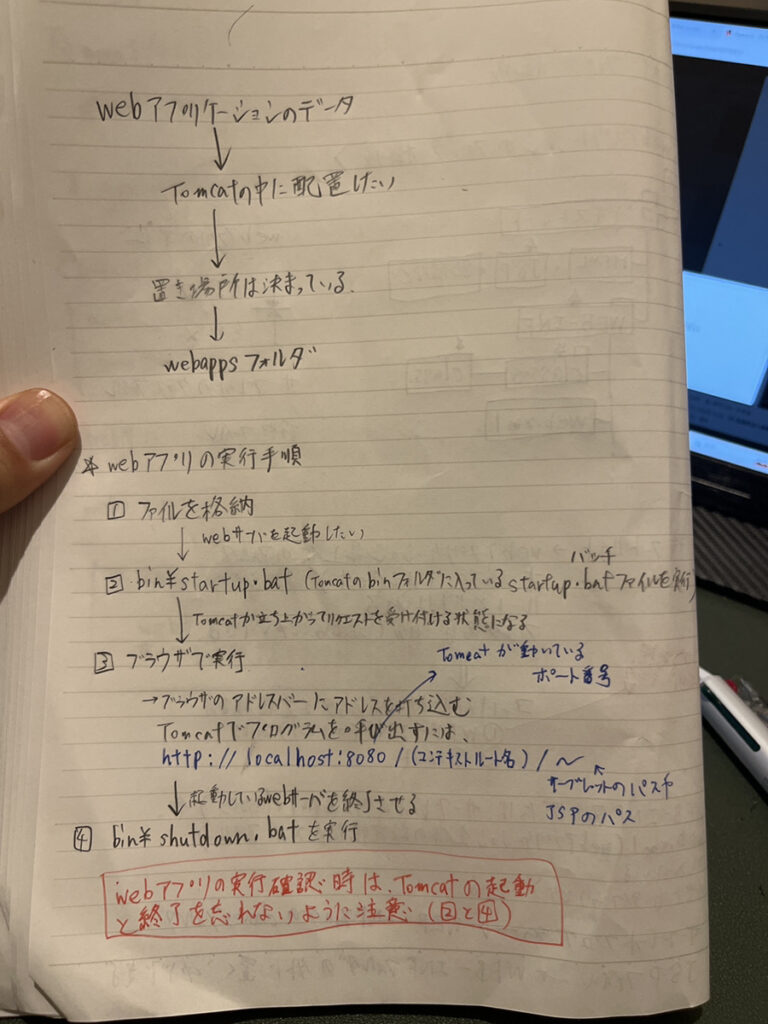 webアプリケーションのデータ
↓
Tomcatの中に配置したい
↓
置き場所は決まっている.
↓
webappsフォルダ
* webアプリの実行手順
1 ファイルを格納
↓ webサーバを起動したい
2 bin¥startup.bat (Tomcatのbinフォルダに入っているstartup.batファイルを実行)
バッチ
↓ Tomcatが立ち上がってリクエストを受け付ける状態になる
3 ブラウザで実行
Tomcatが動いている
ポート番号
→ブラウザのアドレスバーにアドレスを打ち込む
Tomcatでプログラムを呼び出すには、
http://localhost:8080/(コンテキストルート名)/～
サーブレットのパスや
JSPのパス
↓ 起動しているwebサーバを終了させる
4 bin¥shutdown.batを実行
webアプリの実行確認時は、Tomcatの起動
と終了を忘れないように注意(2と4)